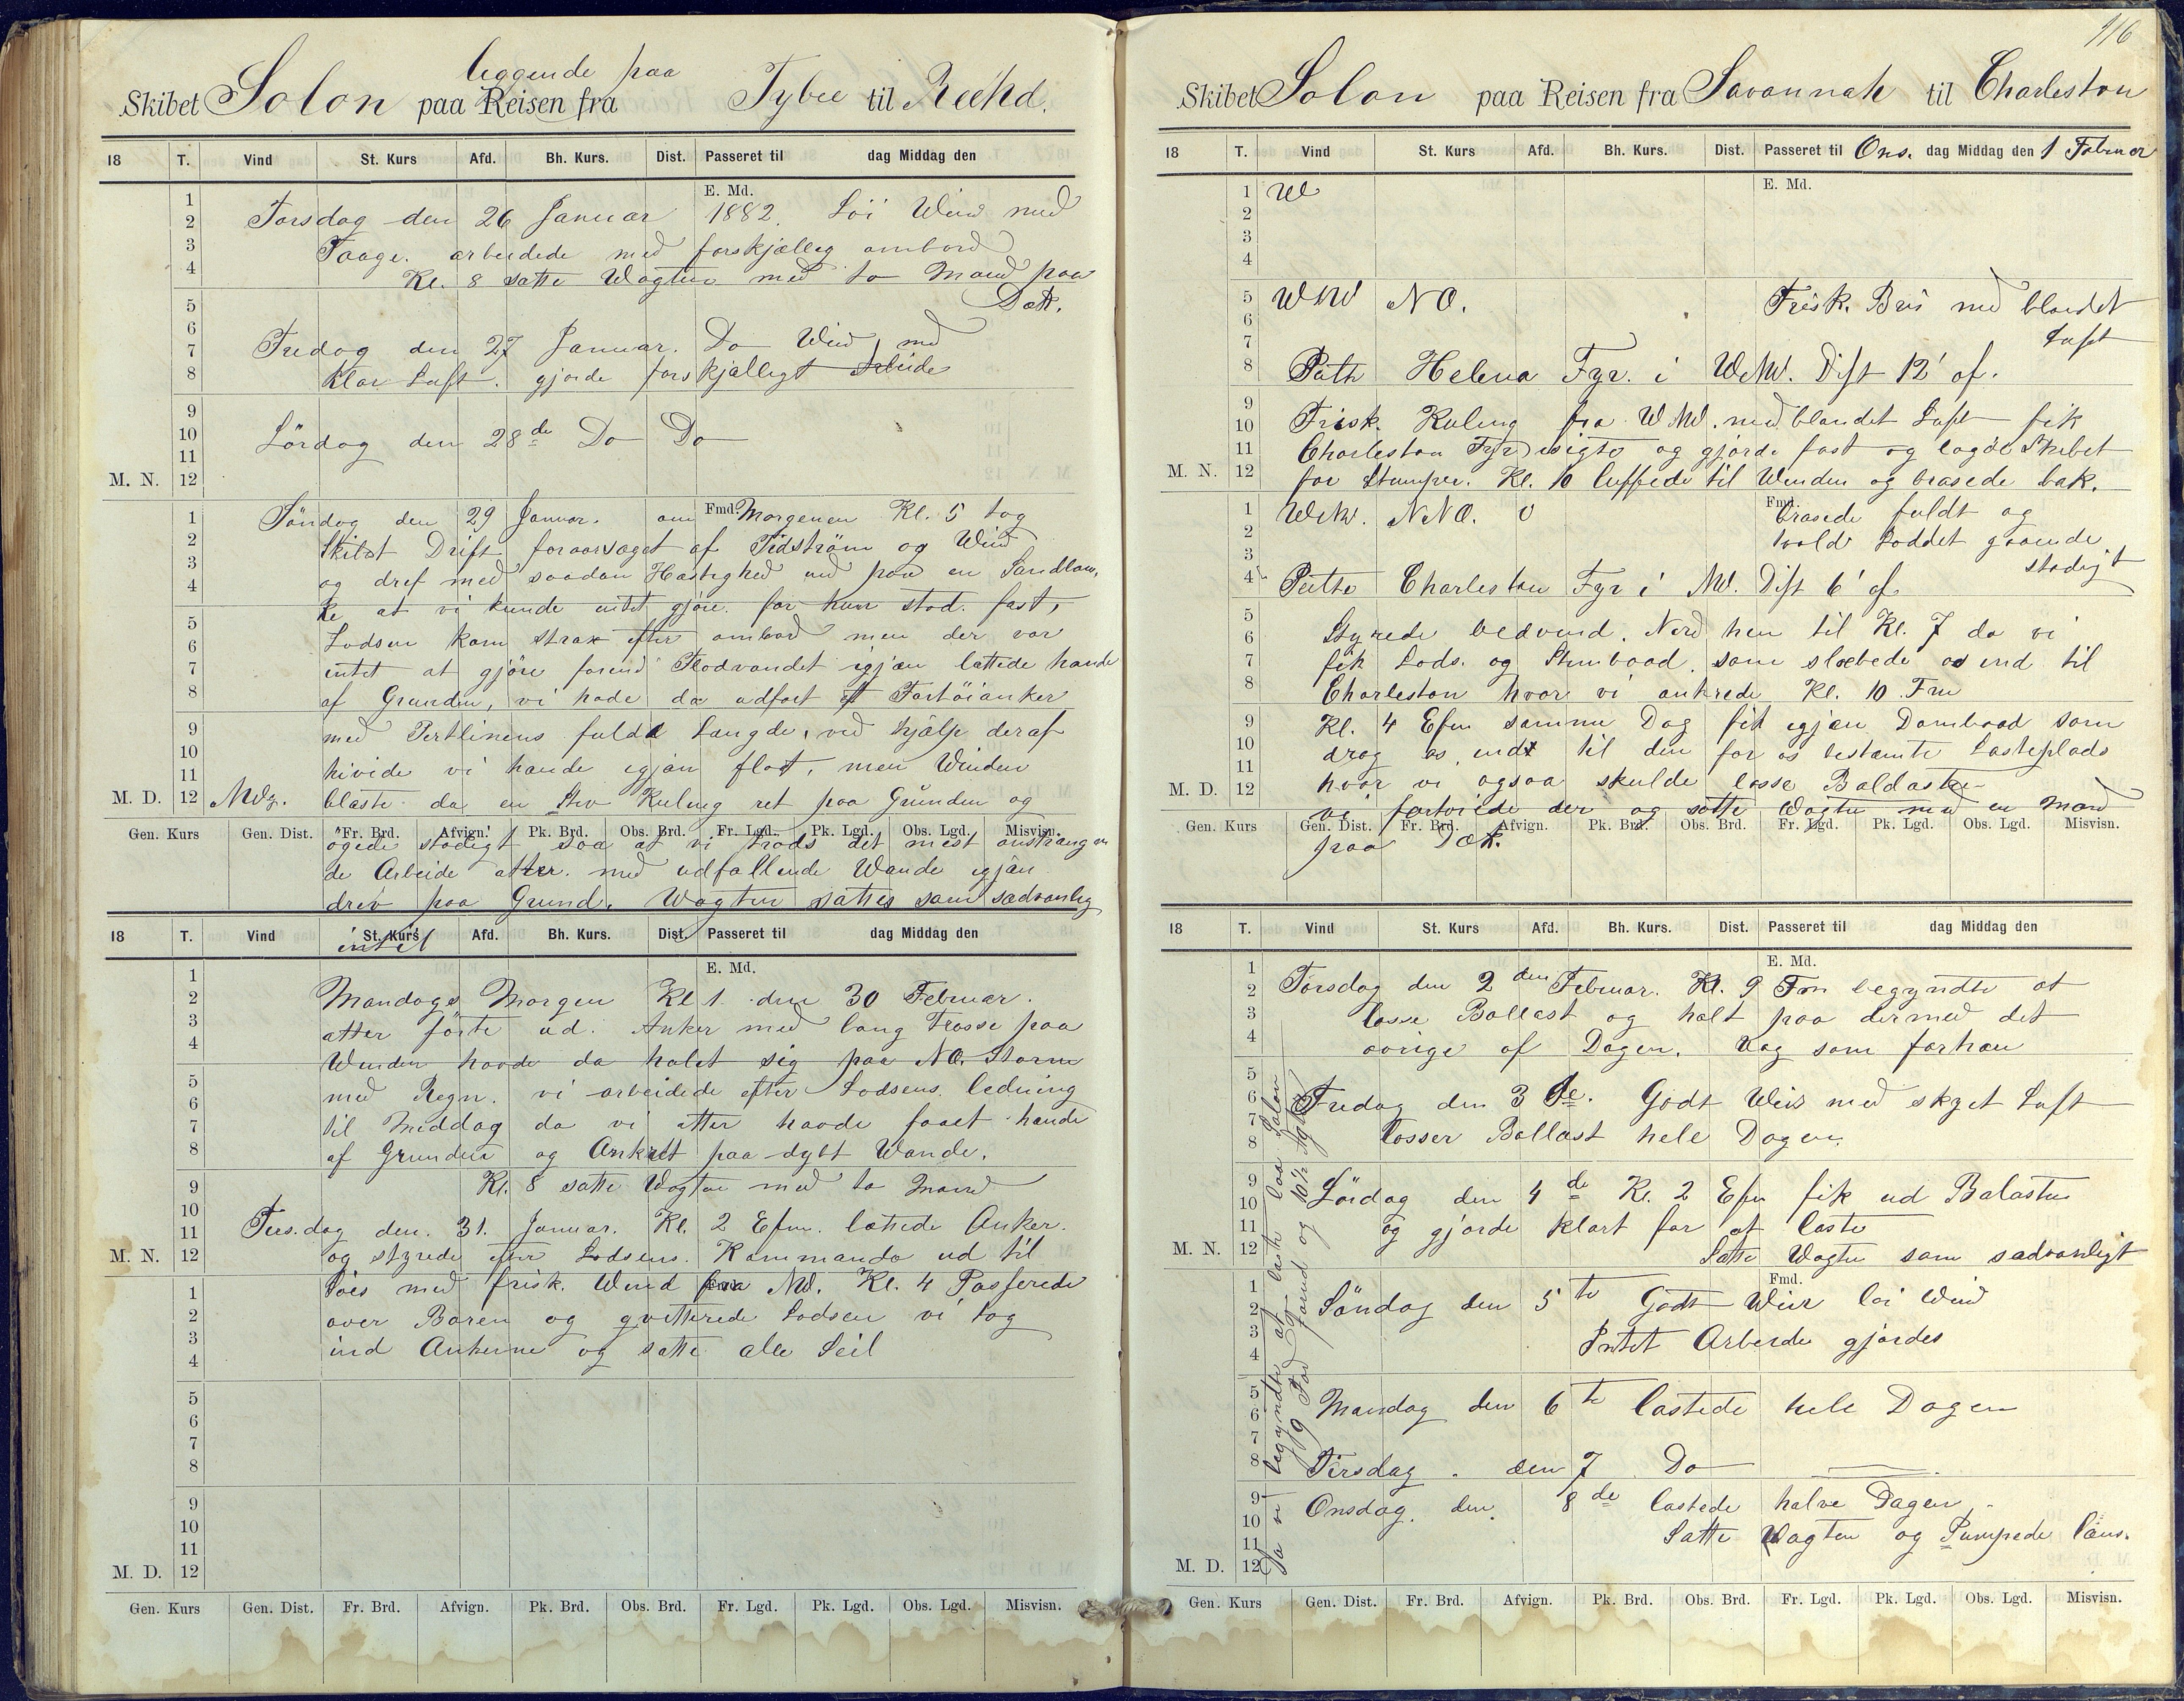 leggende paa
Skibet Solon paa Reisen fra Tybee til Reehd.
18 T. Vind St. Kurs Afd. Bh. Kurs. Dist. Passeret til dag Middag den
E. Md.
Torsdag den 26 Januar 1882. Löi Wind med
Taage. arbeidede med forskjællig ombord
Kl. 8 satte Wagten med to Mand paa
Dæk.
Fredag den 27 Januar. Do Wind med
klar Luft. gjorde forskjælligt Arbeide
Lördag den 28de Do Do
M. N.
Söndag den 29 Januar. om Fmd. Morgenen Kl. 5 tog
Skibet Drift foraarsaget af Tidström og Wind
og dref med saadan Hastighed ind paa en Sandban,
ke at vi kunde intet gjöre for hun stod. fast,
Lodsen kom strax efter ombord men der var
intet at gjöre forend Flodvandet igjæn lættede hande
af Grunden, vi hade da udfört et Fortöianker
med Pertlinens fulde Længde, ved hjælp deraf
hivide vi hande igjæn flot, men Winden
M. D. 12 blæste da en stiv Kuling ret paa Grunden og
Gen. Kurs Gen. Dist. Fr. Brd. Afvign. Pk. Brd. Obs. Brd. Fr. Lgd. Pk. Lgd. Obs. Lgd. Misvisn.
ögede stadigt saa at vi trods det mest anstræng en
de Arbeide atter. med udfallende Wande igjæn
drev paa Grund. Wagten sattes som sædvanlig
18 T. Vind St. Kurs Afd. Bh. Kurs. Dist. Passeret til dag Middag den
intet
E. Md.
Mandags Morgen Kl 1 den 30 Februar.
atter förte ud. Anker med lang Trosse paa
Winden havde da halet sig paa NO. Storm
med Regn. vi arbeidede efter Lodsens. ledning
til Middag da vi atter havde faaet hande
af Grunden og Ankret paa dybt Wande.
Kl. 8 satte Wagten med to Mand
Tirs.dag den. 31. Januar. Kl. 2 Efm. lættede Anker.
M. N. 12 og styrede efter Lodsens. Kommando ud til
Söes med frisk. Wind fra NW. Kl. 4 Passerede
over Baren og qvitterede Lodsen vi tog
ind Ankerne og satte alle Seil
M. D.
Gen. Kurs Gen. Dist. Fr. Brd. Afvign. Pk. Brd. Obs. Brd. Fr. Lgd. Pk. Lgd. Obs. Lgd. Misvisn.
116
Skibet Solon paa Reisen fra Savannah til Charleston
18 T. Vind St. Kurs Afd. Bh. Kurs. Dist. Passeret til Ons. dag Middag den 1 Februar
E. Md.
1 W
5 WNW NO. Frisk. Bris med blandet
Luft
Helena Fyr. i WNW. Dist 12' af.
Frisk. Kuling fra WNW. med blandet Luft fik
Charleston Fyr i sigte og gjorde fast og lagde Skibet
M. N. 12 for Stumper. Kl. 10 luffede til Winden og brasede bak.
WNW. NNO. 0 Fmd. brasede fuldt og
holdt Loddet gaaende
stadigt
Peilte Charleston Fyr i NW. Dist 6' af.
Styrede bedvind. Nord hen til Kl. 7 da vi
fik Lods. og Stimbaad. som slæbede os ind til
Charleston hvor vi ankrede Kl. 10 Fm
Kl. 4 Efm samme Dag fik igjæn Dambaad som
drog os, indt til den for os bestamte Lasteplads
M. D. 12 hvor vi ogsaa skulde losse Baldasten
vi fortöiede der og satte Wagten med en Mand
Gen. Kurs Gen. Dist. Fr. Brd. Afvign. Pk. Brd. Obs. Brd. Fr. Lgd. Pk. Lgd. Obs. Lgd. Misvisn.
paa Dæk.
18 T. Vind St. Kurs Afd. Bh. Kurs. Dist. Passeret til dag Middag den
E. Md.
Torsdag den 2den Februar. Kl. 9 Fm begyndte at
losse Ballast og halt paa dermed det
övrige af Dagen. Vag som forhen
Fredag den 3de. Godt Weir med skyet Luft
losser Ballast hele Dagen.
Lördag den 4de Kl. 2 Efm fik ud Balasten
og gjorde klart for at laste
M. N. Satte Wagten som sædvanligt
Fmd.
Söndag den 5te Godt Weir löi Wind
Intet Arbeide gjordes
Mandag den 6te lastede hele Dagen
Tirsdag. den 7 Do
Onsdag. den. 8de lastede halve Dagen.
Satte Wagten og Pumpede læns.
M. D.
da vi begyndte at laste laa Solon
Gen. Kurs Gen. Dist. Fr. Brd. Afvign. Pk. Brd. Obs. Brd. Fr. Lgd. Pk. Lgd. Obs. Lgd. Misvisn.